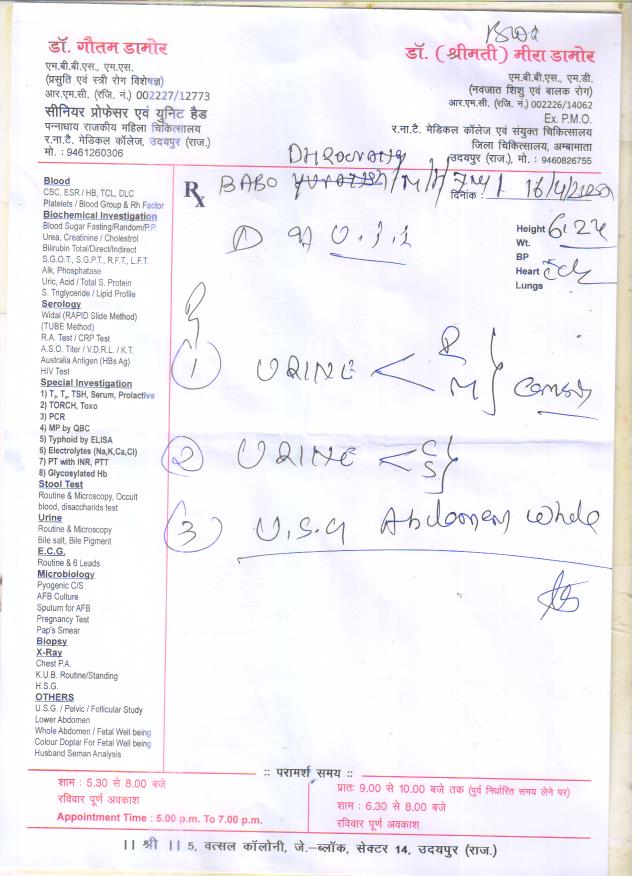 डॉ. गौतम डामोर
एम.बी.बी.एस., एम.एस.
(प्रसुति एवं स्त्री रोग विशेषज्ञ)
आर.एम.सी. (रजि. नं.) 002227/12773
सीनियर प्रोफेसर एवं युनिट हैड
पन्नाधाय राजकीय महिला चिकित्सालय
र.ना.टै. मेडिकल कॉलेज, उदयपुर (राज.)
मो. : 9461260306
डॉ. (श्रीमती) मीरा डामोर
एम.बी.बी.एस., एम.डी.
(नवजात शिशु एवं बालक रोग)
आर.एम.सी. (रजि. नं.) 002226/14062
Ex. P.M.O.
र.ना.टै. मेडिकल कॉलेज एवं संयुक्त चिकित्सालय
जिला चिकित्सालय, अम्बामाता
उदयपुर (राज.), मो. : 9460826755
Blood
CBC, ESR / HB, TCL, DLC
Platelets / Blood Group & Rh Factor
Biochemical Investigation
Blood Sugar Fasting/Random/P.P.
Urea, Creatinine / Cholestrol
Bilirubin Total/Direct/Indirect
S.G.O.T., S.G.P.T., R.F.T., L.F.T.
Alk, Phosphatase
Uric, Acid / Total S. Protein
S. Triglyceride / Lipid Profile
Serology
Widal (RAPID Slide Method)
(TUBE Method)
R.A. Test / CRP Test
A.S.O. Titer / V.D.R.L. / K.T.
Australia Antigen (HBs Ag)
HIV Test
Special Investigation
1) T₃, T₄, TSH, Serum, Prolactive
2) TORCH, Toxo
3) PCR
4) MP by QBC
5) Typhoid by ELISA
6) Electrolytes (Na,K,Ca,Cl)
7) PT with INR, PTT
8) Glycosylated Hb
Stool Test
Routine & Microscopy, Occult
blood, disaccharids test
Urine
Routine & Microscopy
Bile salt, Bile Pigment
E.C.G.
Routine & 6 Leads
Microbiology
Pyogenic C/S
AFB Culture
Sputum for AFB
Pregnancy Test
Pap's Smear
Biopsy
X-Ray
Chest P.A.
K.U.B. Routine/Standing
H.S.G.
OTHERS
U.S.G. / Pelvic / Follicular Study
Lower Abdomen
Whole Abdomen / Fetal Well being
Colour Doplar For Fetal Well being
Husband Seman Analysis
Rx BABO
दिनांक :
Height
Wt.
BP
Heart
Lungs
1 URINE < R M }
2 URINE < C S }
3 U.S.G Abdomen Whole
:: परामर्श समय ::
शाम : 5.30 से 8.00 बजे
रविवार पूर्ण अवकाश
Appointment Time : 5.00 p.m. To 7.00 p.m.
प्रातः 9.00 से 10.00 बजे तक (पुर्व निर्धारित समय लेने पर)
शाम : 6.30 से 8.00 बजे
रविवार पूर्ण अवकाश
।। श्री ।। 5, वत्सल कॉलोनी, जे.–ब्लॉक, सेक्टर 14, उदयपुर (राज.)